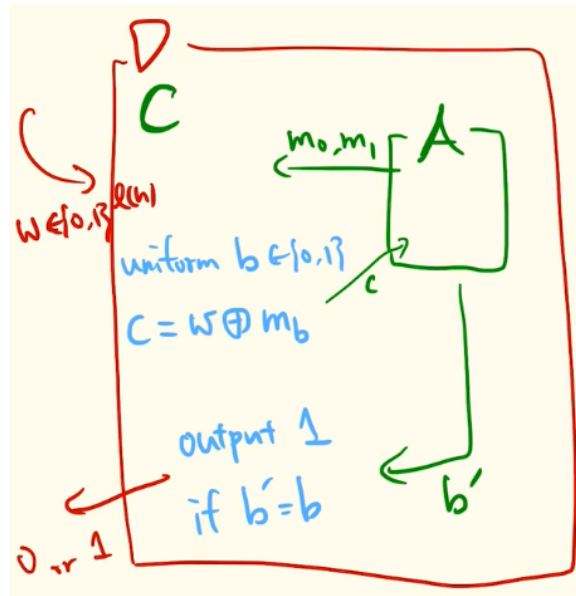 D
C
A
m₀, m₁
w ∈ {0,1}^ℓ(n)
uniform b ∈ {0,1}
c
C = w ⊕ m_b
output 1
if b′ = b
b′
0 or 1